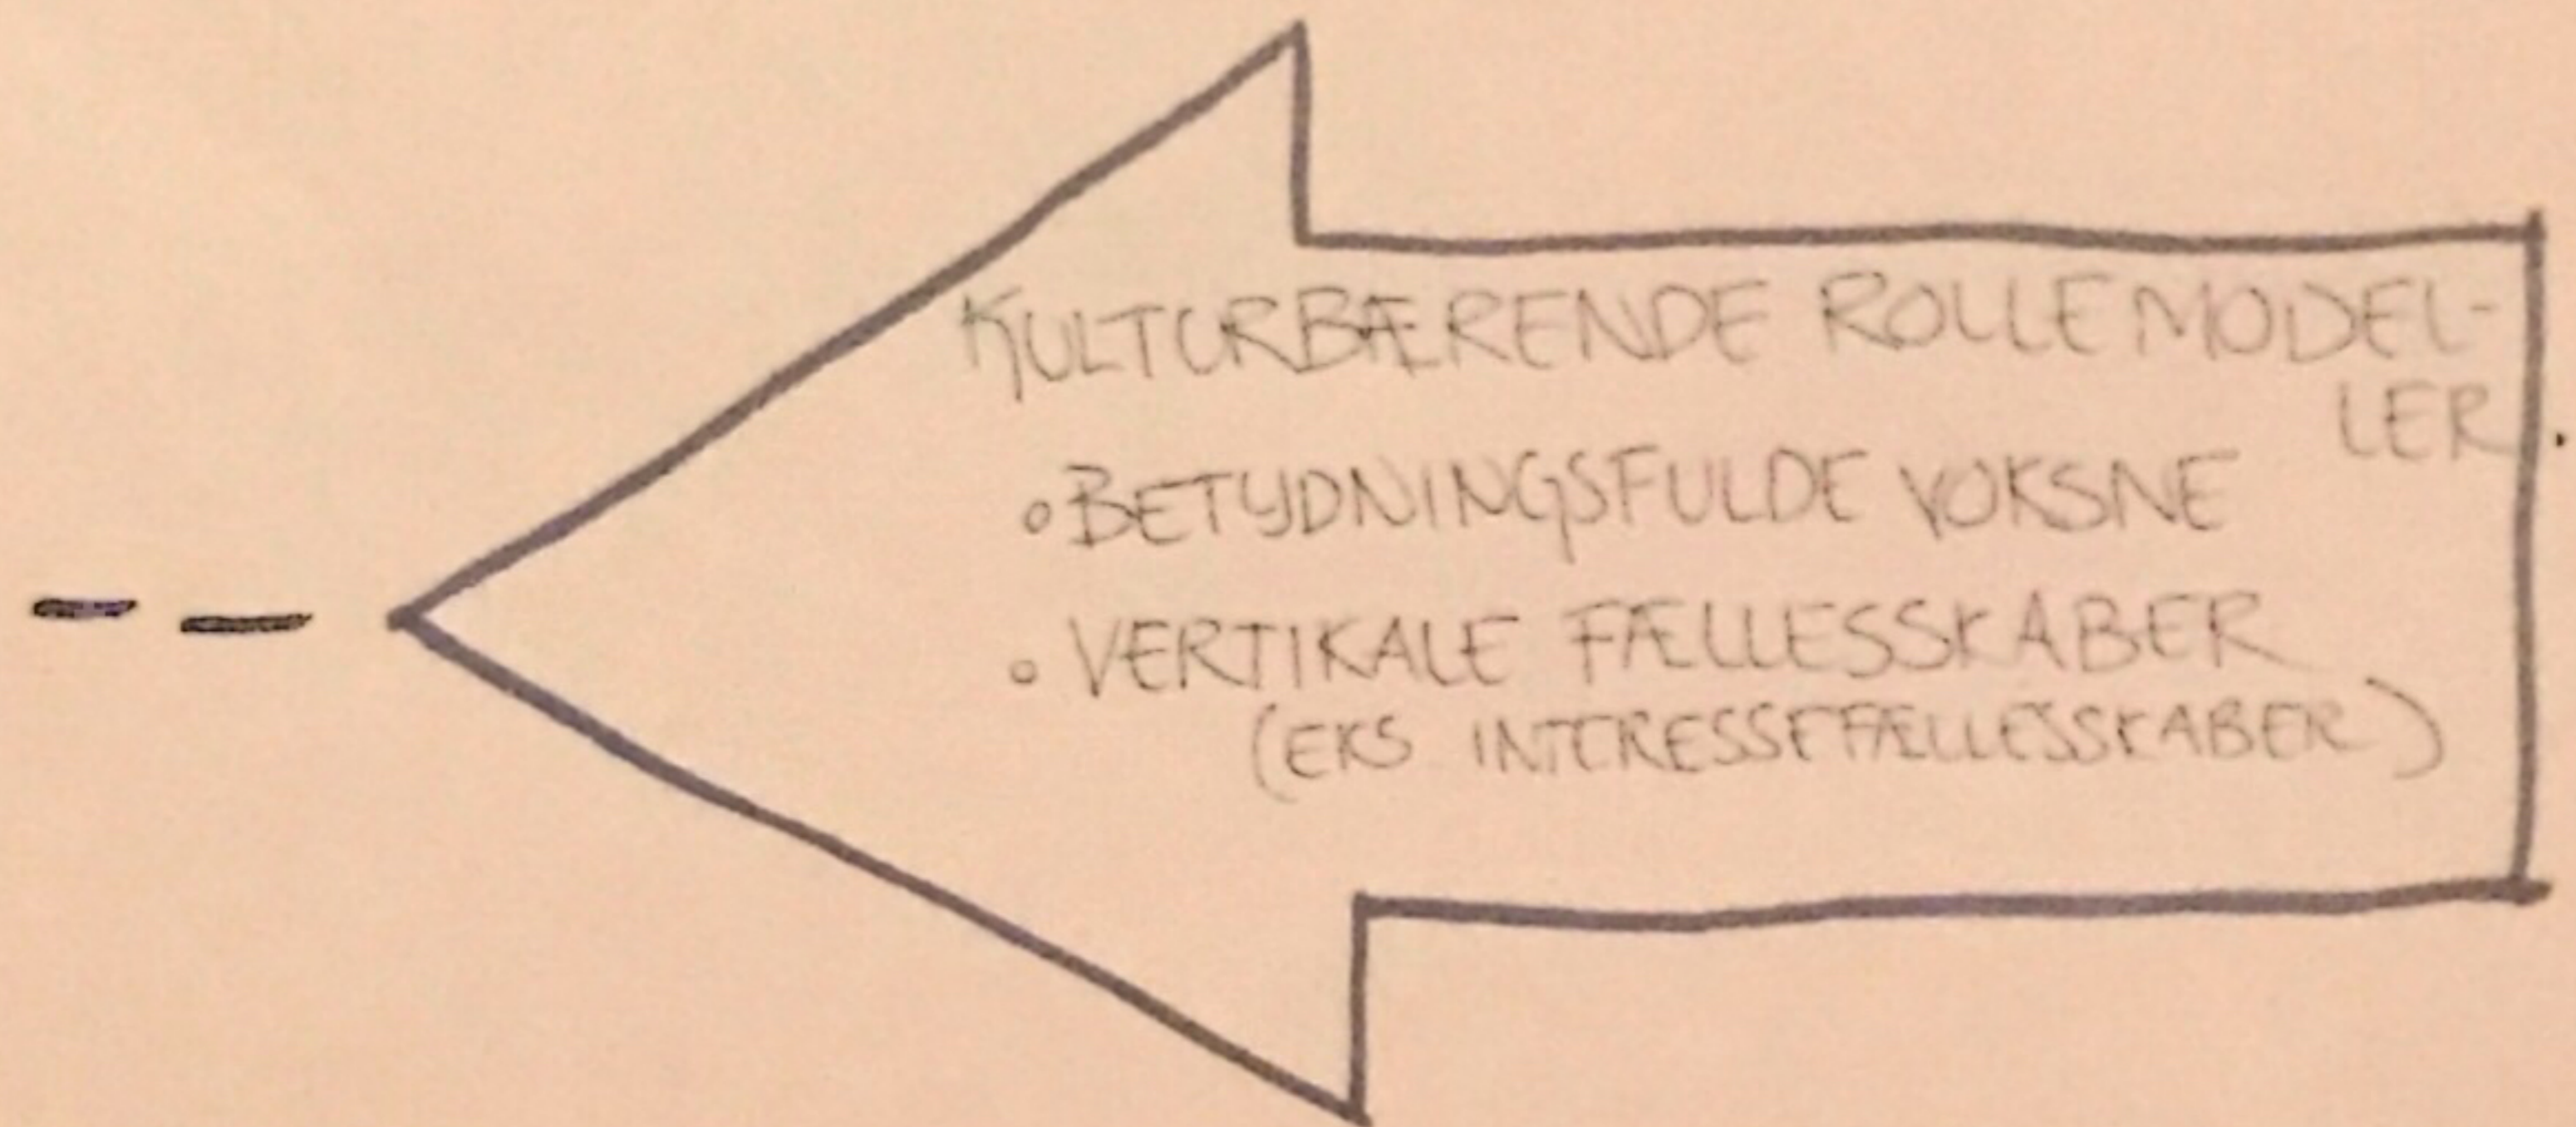 KULTURBÆRENDE ROLLEMODEL-
LER
• BETYDNINGSFULDE VOKSNE
• VERTIKALE FÆLLESSKABER
(EKS INTERESSEFÆLLESSKABER)